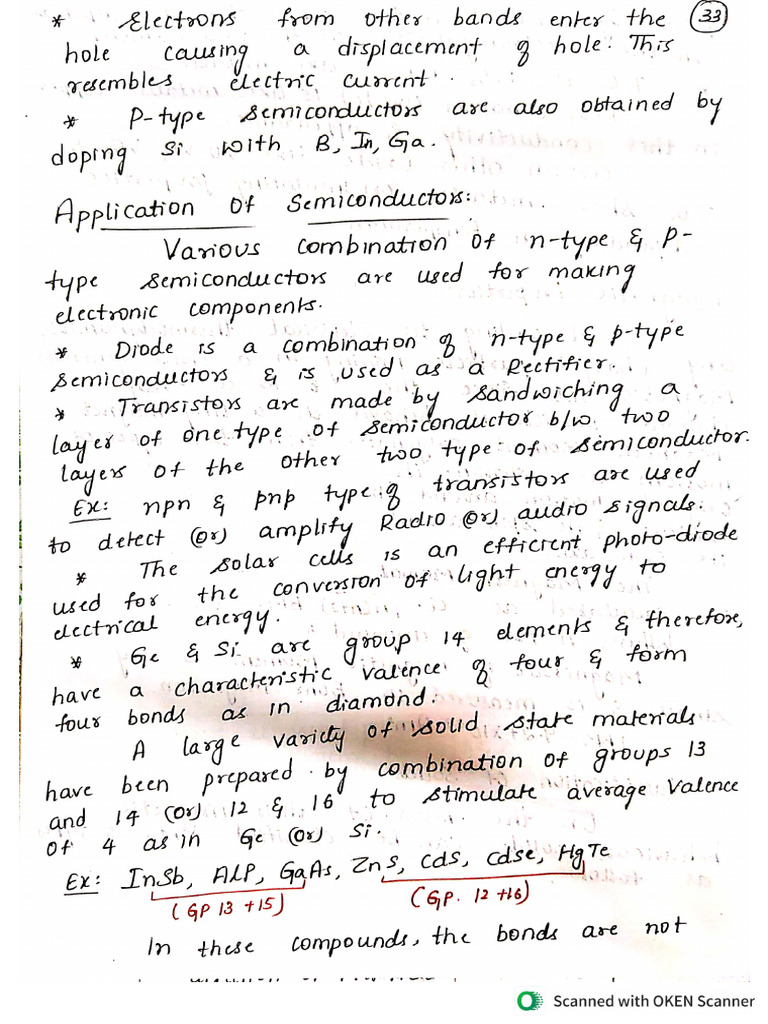 * Electrons from other bands enter the (33)
hole causing a displacement of hole. This
resembles electric current.
* P-type semiconductors are also obtained by
doping Si with B, In, Ga.
Application Of Semiconductors:
Various combination of n-type & P-
type semiconductors are used for making
electronic components.
* Diode is a combination of n-type & p-type
semiconductors & is used as a Rectifier.
* Transistors are made by sandwiching a
layer of one type of semiconductor b/w two
layers of the other two type of semiconductor.
Ex: npn & pnp type of transistors are used
to detect (or) amplify Radio (or) audio signals.
* The solar cells is an efficient photo-diode
used for the conversion of light energy to
electrical energy.
* Ge & Si are group 14 elements & therefore,
have a characteristic valence of four & form
four bonds as in diamond.
A large variety of solid state materials
have been prepared by combination of groups 13
and 14 (or) 12 & 16 to stimulate average valence
of 4 as in Ge (or) Si.
Ex: InSb, AlP, GaAs, ZnS, cds, cdse, HgTe
(GP 13 +15) (GP. 12 +16)
In these compounds, the bonds are not
Scanned with OKEN Scanner